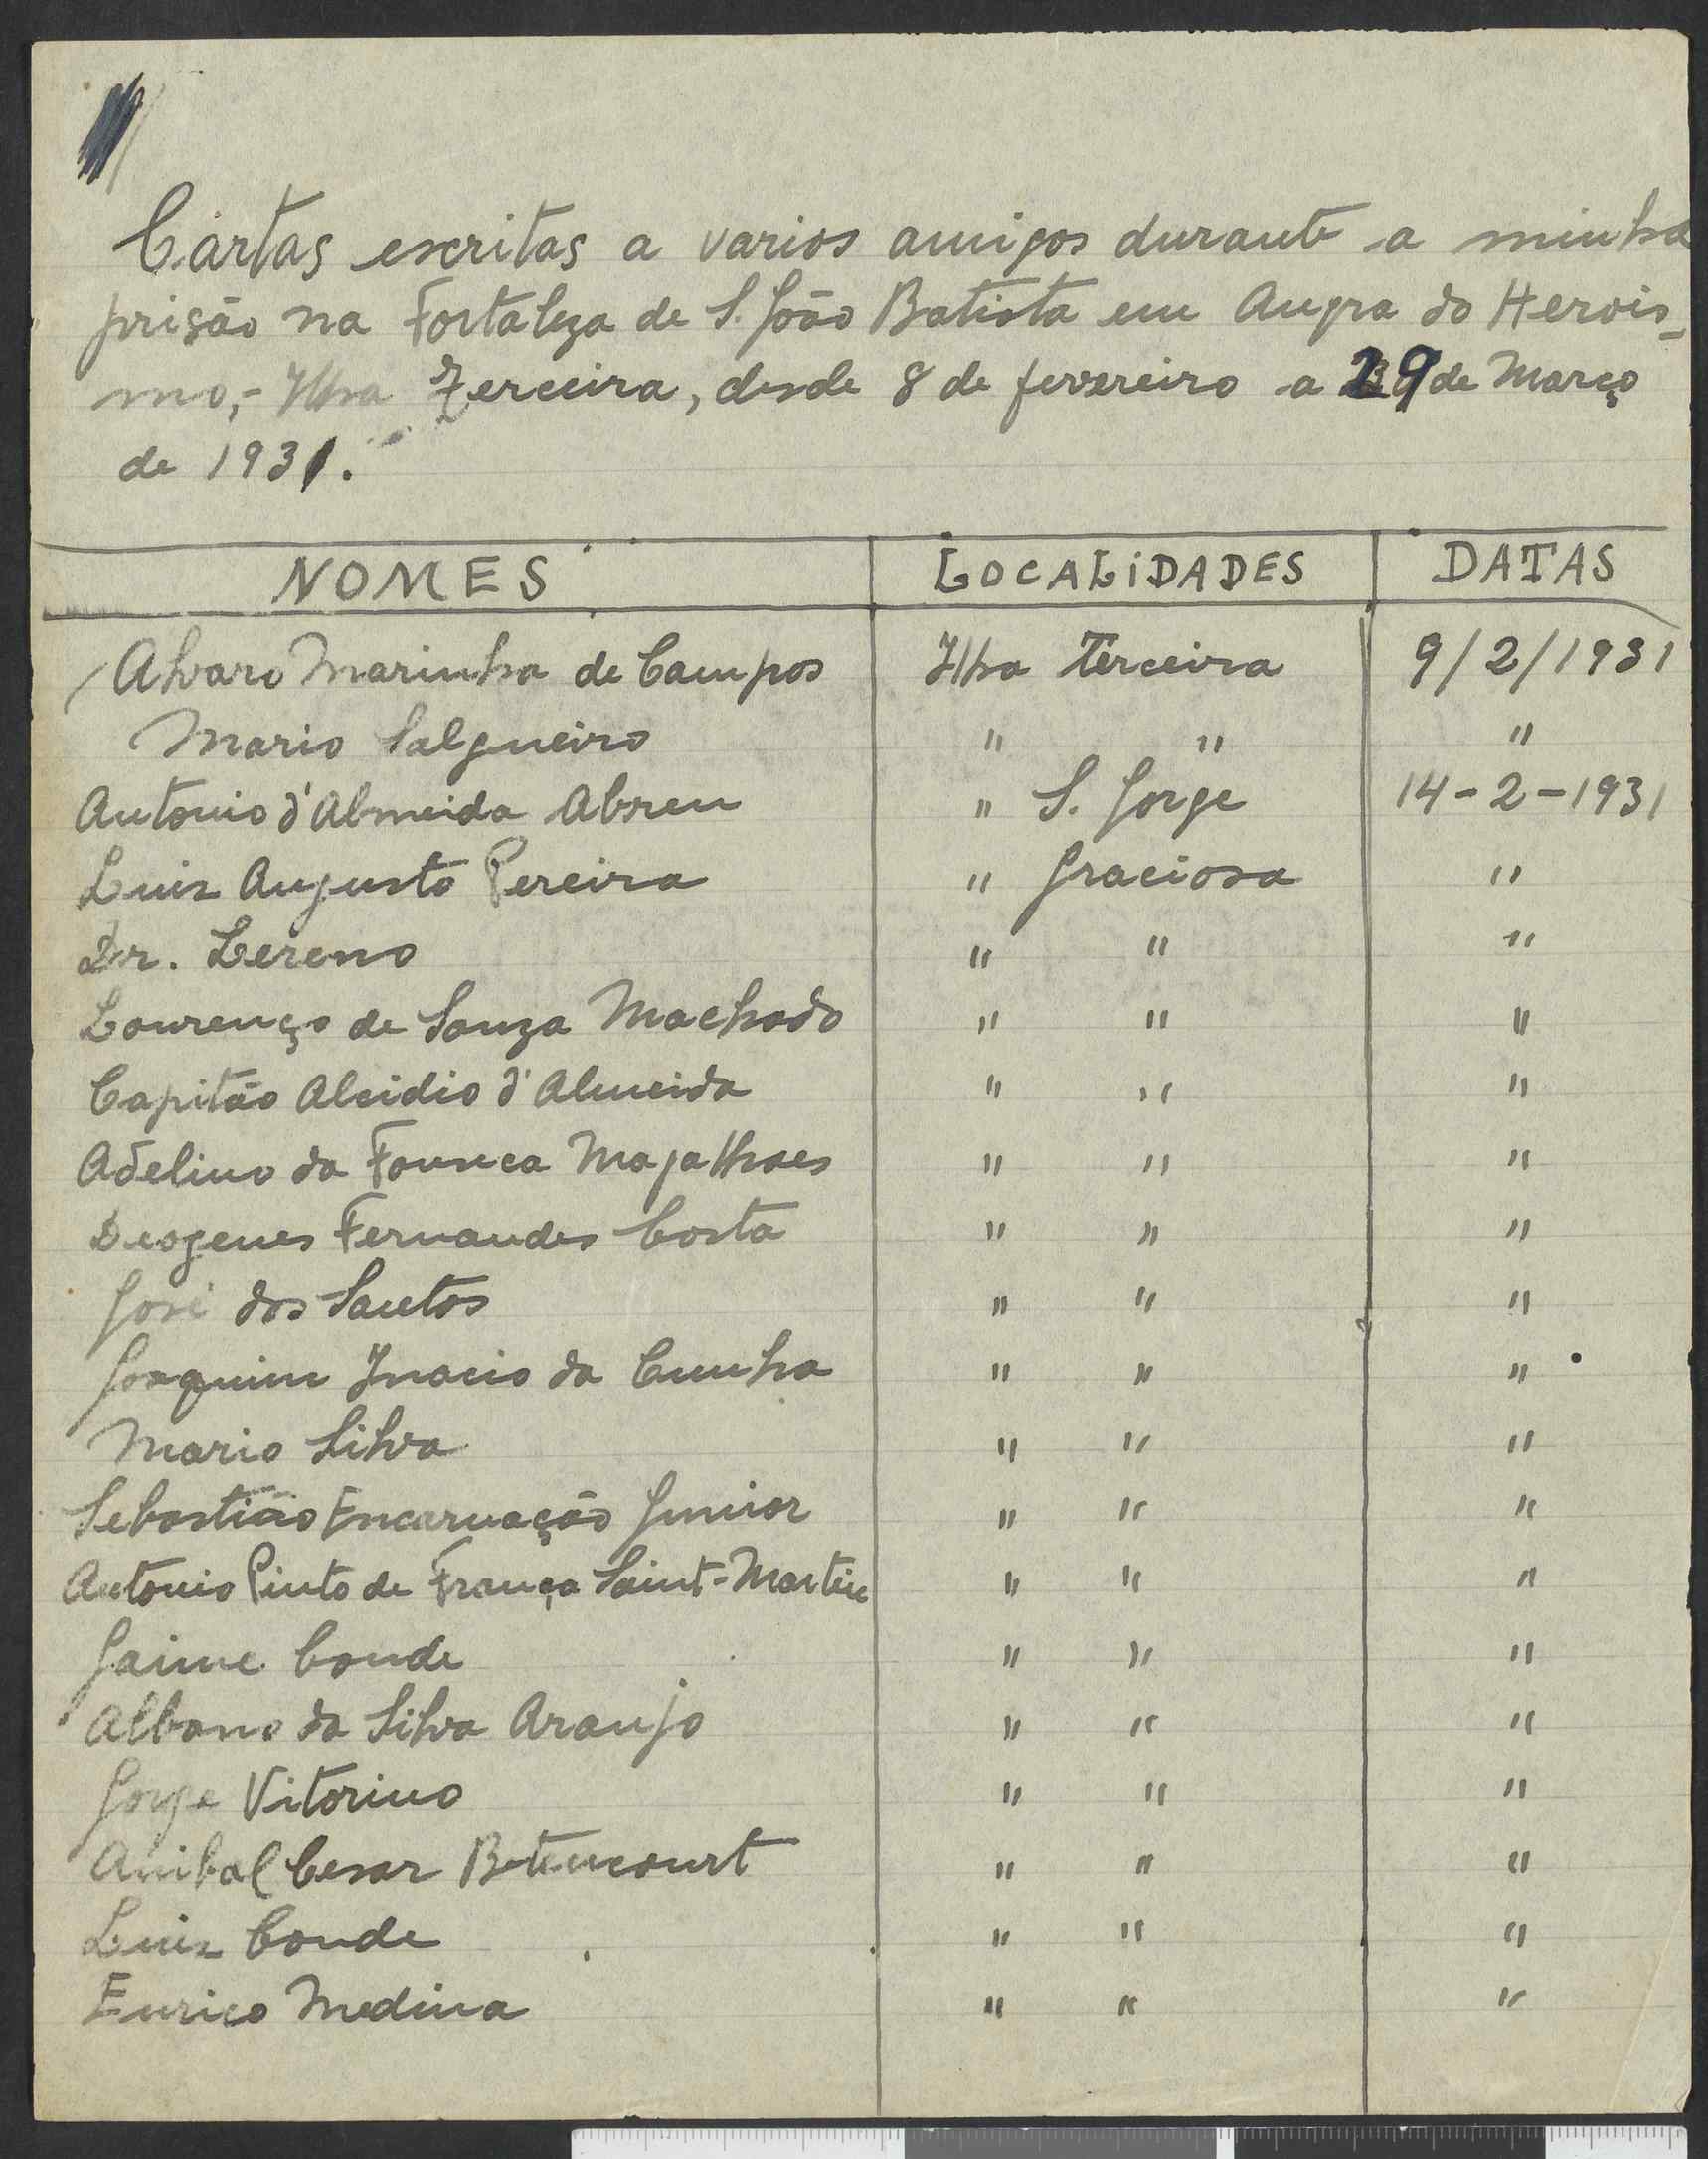 Cartas escritas a varios amigos durante a minha
prisão na Fortaleza de S. João Batista em Angra do Herois-
mo,- Ilha Terceira, desde 8 de fevereiro a 29 de Março
de 1931.
NOMES LOCALIDADES DATAS
Alvaro Marinha de Campos Ilha Terceira 9/2/1931
Mario Salgueiro " " "
Antonio d'Almeida Abreu " S. Jorge 14-2-1931
Luiz Augusto Pereira " Graciosa "
Dr. Lereno " " "
Lourenço de Souza Machado " " "
Capitão Alcidio d'Almeida " " "
Adelino da Fonseca Magalhaes " " "
Deogenes Fernandes Costa " " "
José dos Santos " " "
Joaquim Inacio da Cunha " " "
Mario Silva " " "
Sebastião Encarnação Junior " " "
Antonio Pinto de França Saint-Martin " " "
Jaime Conde " " "
Albano da Silva Araujo " " "
Jorge Vitorino " " "
Anibal Cesar Betencourt " " "
Luiz Conde " " "
Eurico Medina " " "